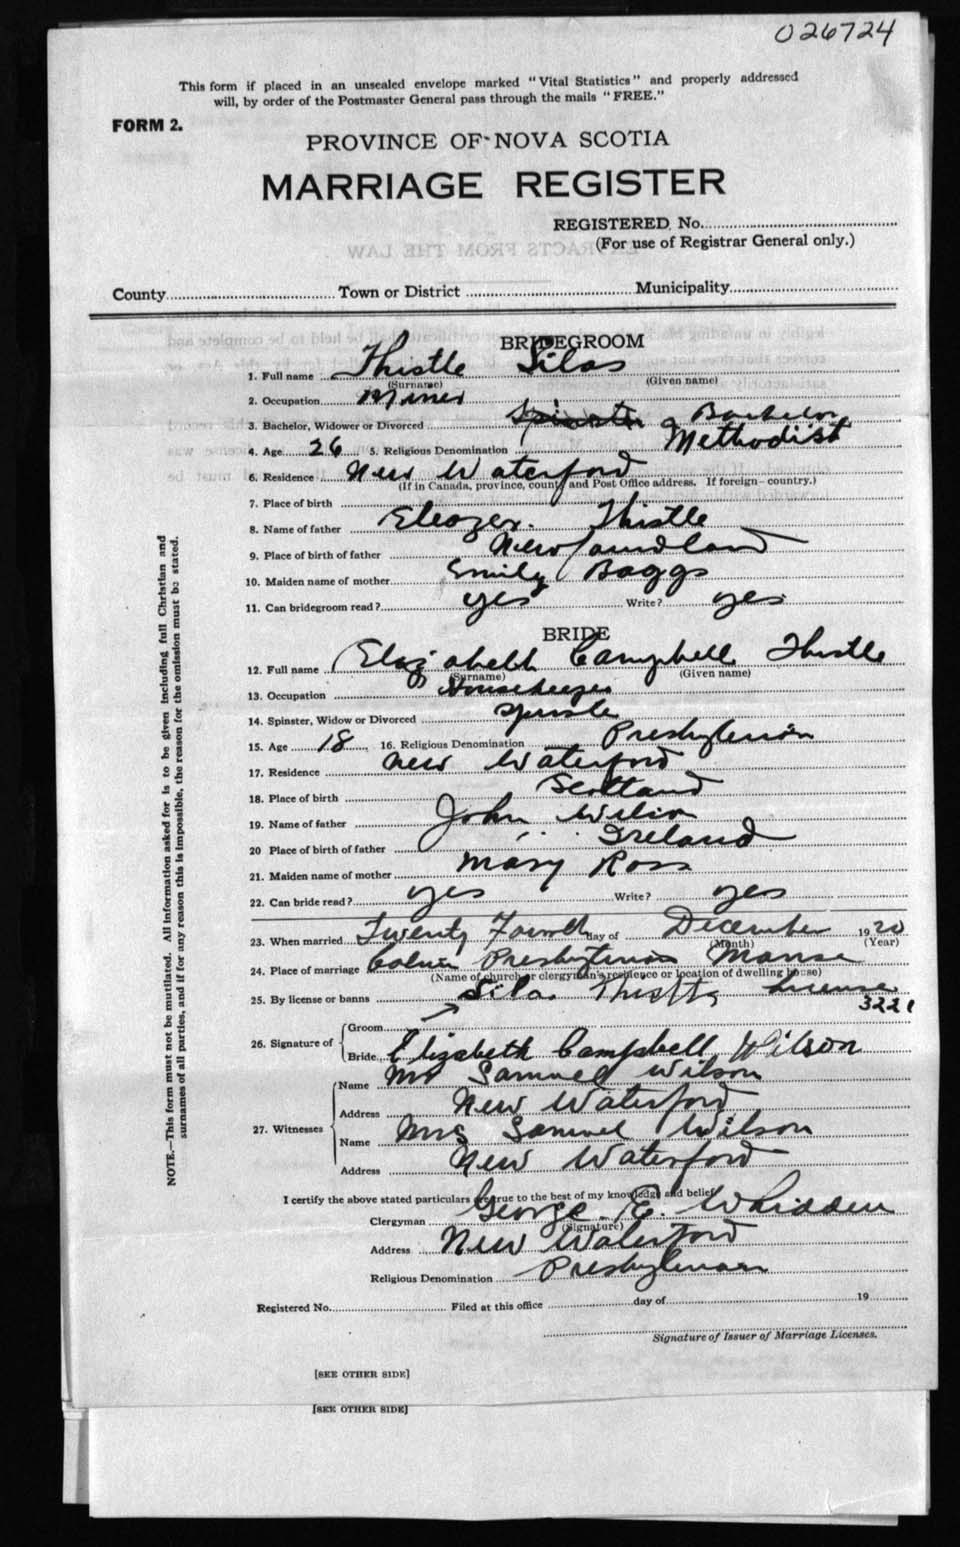 026724
This form if placed in an unsealed envelope marked "Vital Statistics" and properly addressed
will, by order of the Postmaster General pass through the mails "FREE."
FORM 2.
PROVINCE OF NOVA SCOTIA
MARRIAGE REGISTER
REGISTERED No.
(For use of Registrar General only.)
EXTRACTS FROM THE LAW
County Town or District Municipality
BRIDEGROOM
1. Full name Thistle Silas
(Surname) (Given name)
2. Occupation Miner
3. Bachelor, Widower or Divorced Spinster Bachelor
4. Age 26 5. Religious Denomination Methodist
6. Residence New Waterford
(If in Canada, province, county and Post Office address. If foreign—country.)
7. Place of birth
8. Name of father Eleazer Thistle
9. Place of birth of father Newfoundland
10. Maiden name of mother Emily Baggs
11. Can bridegroom read? yes Write? yes
BRIDE
12. Full name Elizabeth Campbell Thistle
(Surname) (Given name)
13. Occupation Housekeeper
14. Spinster, Widow or Divorced
15. Age 18 16. Religious Denomination Presbyterian
17. Residence New Waterford
18. Place of birth Scotland
19. Name of father John
20 Place of birth of father Ireland
21. Maiden name of mother Mary Ross
22. Can bride read? yes Write? yes
23. When married Twenty Fourth day of December 1920
(Month) (Year)
24. Place of marriage Calvin Presbyterian Manse
(Name of church or clergyman's residence or location of dwelling house)
25. By license or banns License
3221
Silas Thistle
26. Signature of Groom
Bride Elizabeth Campbell Wilson
27. Witnesses Name Mr Samuel Wilson
Address New Waterford
Name Mrs Samuel Wilson
Address New Waterford
I certify the above stated particulars are true to the best of my knowledge and belief
Clergyman George E. Whidden
(Signature)
Address New Waterford
Religious Denomination Presbyterian
Registered No. Filed at this office day of 19
Signature of Issuer of Marriage Licenses.
[SEE OTHER SIDE]
[SEE OTHER SIDE]
NOTE.—This form must not be mutilated. All information asked for is to be given including full Christian and
surnames of all parties, and if for any reason this is impossible, the reason for the omission must be stated.